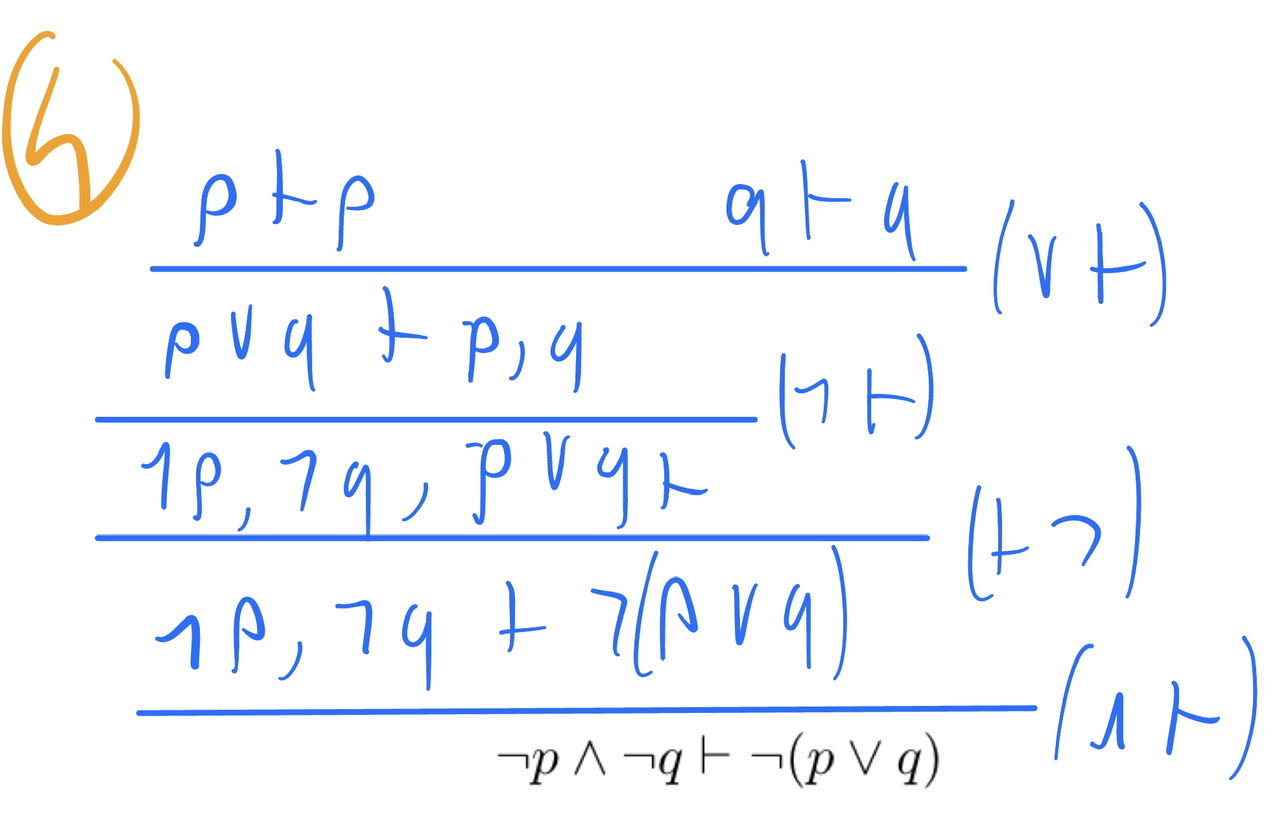 4
p ⊢ p q ⊢ q (∨ ⊢)
p ∨ q ⊢ p, q (¬ ⊢)
¬p, ¬q, p ∨ q ⊢ (⊢ ¬)
¬p, ¬q ⊢ ¬(p ∨ q) (∧ ⊢)
¬p ∧ ¬q ⊢ ¬(p ∨ q)